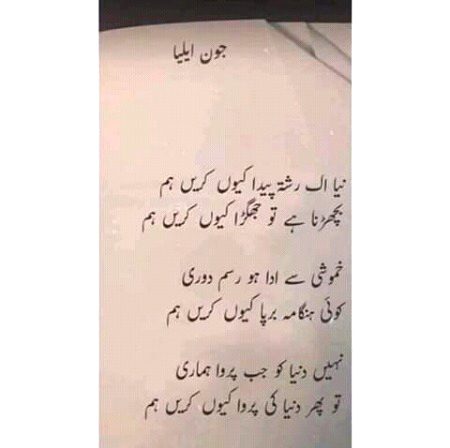 جون ایلیا
نیا اک رشتہ پیدا کیوں کریں ہم
بچھڑنا ہے تو جھگڑا کیوں کریں ہم
خموشی سے ادا ہو رسم دوری
کوئی ہنگامہ برپا کیوں کریں ہم
نہیں دنیا کو جب پروا ہماری
تو پھر دنیا کی پروا کیوں کریں ہم